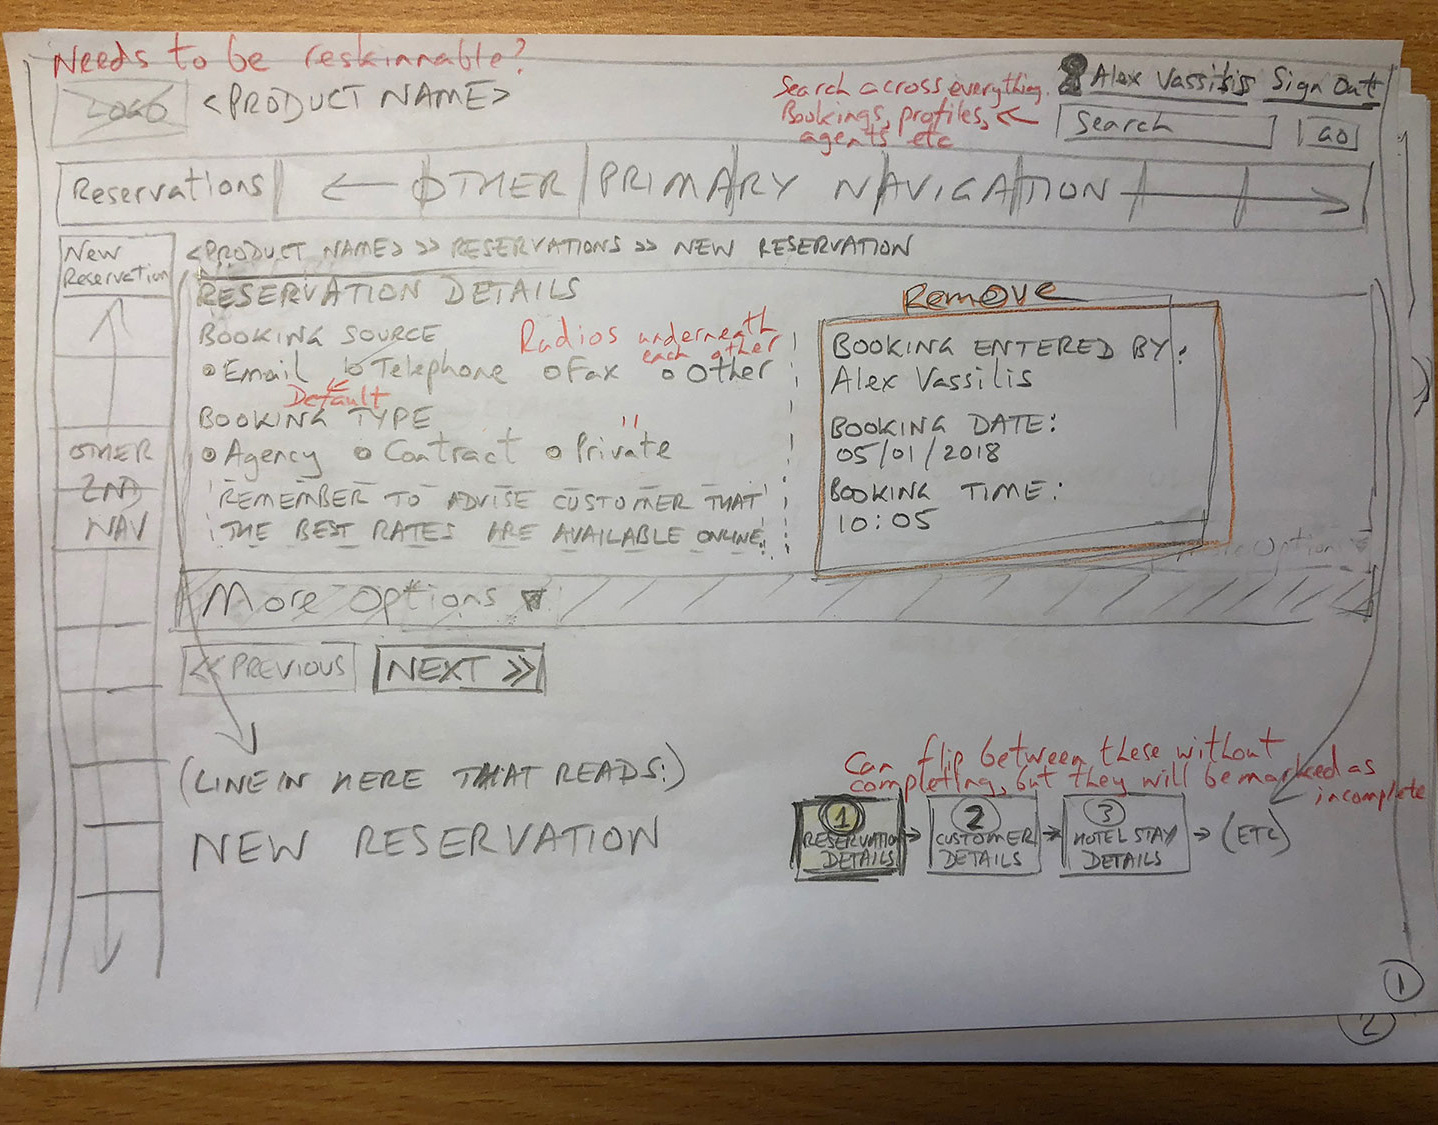 Needs to be reskinnable?
LOGO <PRODUCT NAME>
Alex Vassilis Sign Out
Search across everything.
Bookings, profiles,
agents etc
Search
GO
Reservations
OTHER PRIMARY NAVIGATION
New
Reservation
<PRODUCT NAME> >> RESERVATIONS >> NEW RESERVATION
RESERVATION DETAILS
Remove
BOOKING SOURCE
Radios underneath
each other
Email Telephone Fax Other
Default
BOOKING TYPE
"
Agency Contract Private
REMEMBER TO ADVISE CUSTOMER THAT
THE BEST RATES ARE AVAILABLE ONLINE.
BOOKING ENTERED BY:
Alex Vassilis
BOOKING DATE:
05/01/2018
BOOKING TIME:
10:05
OTHER
2ND
NAV
Options
More Options
<< PREVIOUS
NEXT >>
(LINE IN HERE THAT READS:)
NEW RESERVATION
Can flip between these without
completing, but they will be marked as
incomplete
1
RESERVATION
DETAILS
2
CUSTOMER
DETAILS
3
HOTEL STAY
DETAILS
(ETC)
1
2